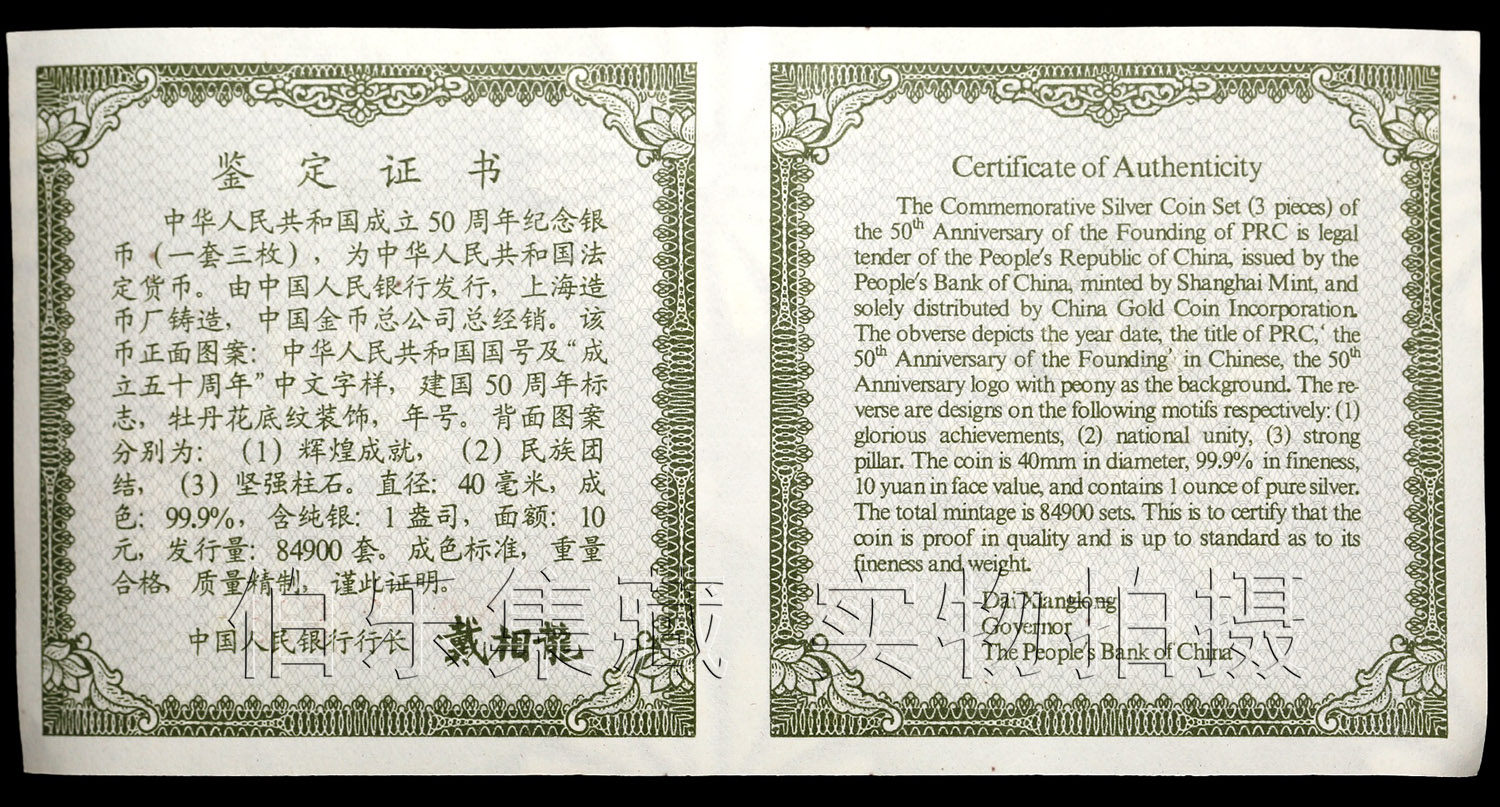 鉴定证书
中华人民共和国成立 50 周年纪念银
币（一套三枚），为中华人民共和国法
定货币。由中国人民银行发行，上海造
币厂铸造，中国金币总公司总经销。该
币正面图案：中华人民共和国国号及“成
立五十周年”中文字样，建国 50 周年标
志，牡丹花底纹装饰，年号。背面图案
分别为：（1）辉煌成就，（2）民族团
结，（3）坚强柱石。直径：40 毫米，成
色：99.9%，含纯银：1 盎司，面额：10
元，发行量：84900 套。成色标准，重量
合格，质量精制，谨此证明。
中国人民银行行长 戴相龙
Certificate of Authenticity
The Commemorative Silver Coin Set (3 pieces) of
the 50th Anniversary of the Founding of PRC is legal
tender of the People's Republic of China, issued by the
People's Bank of China, minted by Shanghai Mint, and
solely distributed by China Gold Coin Incorporation.
The obverse depicts the year date, the title of PRC,‘ the
50th Anniversary of the Founding’ in Chinese, the 50th
Anniversary logo with peony as the background. The re-
verse are designs on the following motifs respectively: (1)
glorious achievements, (2) national unity, (3) strong
pillar. The coin is 40mm in diameter, 99.9% in fineness,
10 yuan in face value, and contains 1 ounce of pure silver.
The total mintage is 84900 sets. This is to certify that the
coin is proof in quality and is up to standard as to its
fineness and weight.
Dai Xianglong
Governor
The People's Bank of China
伯乐集藏 实物拍摄